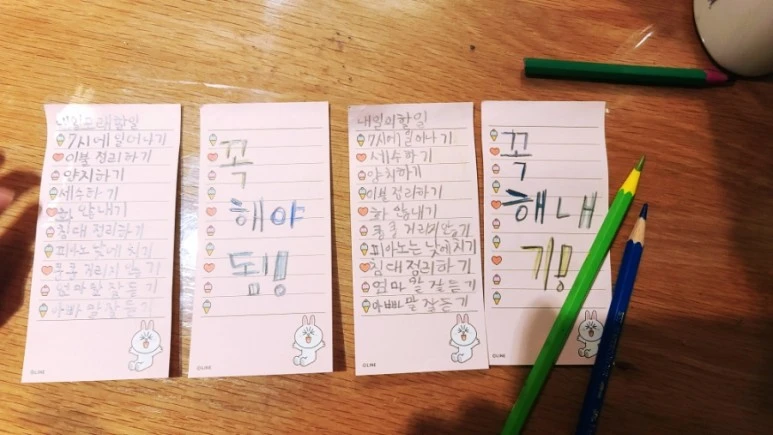 7시에 일어나기
이불 정리하기
양치하기
세수하기
화 안내기
침대 정리하기
피아노 낮에 치기
쿵쿵 거리지 않기
엄마 말 잘 듣기
아빠 말 잘 듣기
©LINE
꼭
해야
됨!
©LINE
내일의 할일
7시에 일어나기
세수하기
양치하기
이불 정리하기
화 안내기
쿵쿵 거리며 안놀기
피아노는 낮에치기
침대 정리하기
엄마 말 잘듣기
아빠 말 잘듣기
©LINE
꼭
해내
기!